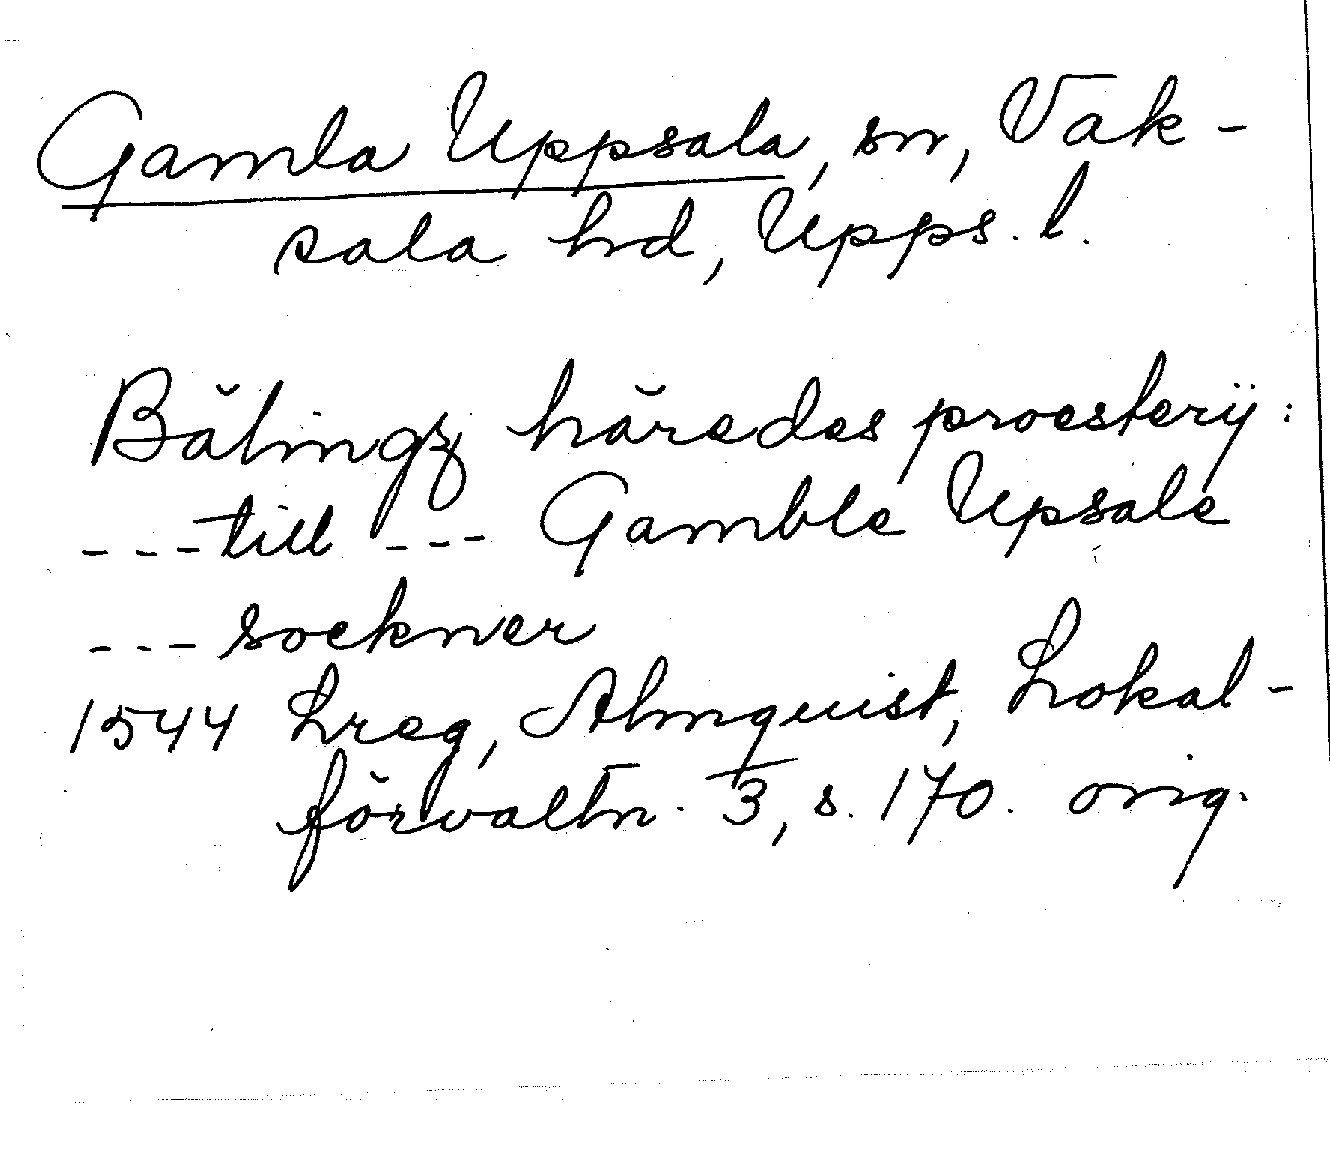 Gamla Uppsala, sn, Vak-
sala hd, Upps. l.
Bälingz häredes proesterij:
---till --- Gamble Upsale
---sockner
1544 Lreg, Almquist, Lokal-
förvaltn. 3, s. 170. orig.